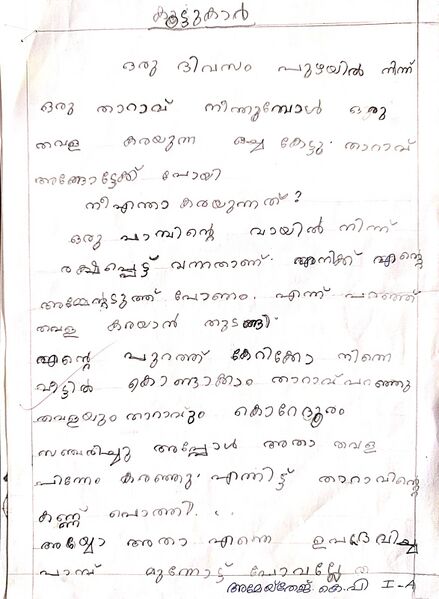 കൂട്ടുകാർ
ഒരു ദിവസം പുഴയിൽ നിന്ന്
ഒരു താറാവ് നീന്തുമ്പോൾ ഒരു
തവള കരയുന്ന ഒച്ച കേട്ടു. താറാവ്
അങ്ങോട്ടേക്ക് പോയി
നീ എന്താ കരയുന്നത്?
ഒരു പാമ്പിന്റെ വായിൽ നിന്ന്
രക്ഷപ്പെട്ട് വന്നതാണ്. എനിക്ക് എന്റെ
അമ്മേന്റടുത്ത് പോണം. എന്ന് പറഞ്ഞ്
തവള കരയാൻ തുടങ്ങി
എന്റെ പുറത്ത് കേറിക്കോ നിന്നെ
വീട്ടിൽ കൊണ്ടാക്കാം താറാവ് പറഞ്ഞു
തവളയും താറാവും കൊറേദൂരം
സഞ്ചരിച്ചു അപ്പോൾ അതാ തവള
പിന്നേം കരഞ്ഞു. എന്നിട്ട് താറാവിന്റെ
കണ്ണ് പൊത്തി. . .
അയ്യോ അതാ എന്നെ ഉപദ്രവിച്ച
പാമ്പ് മുന്നോട്ട് പോവല്ലേ
അമേയ്തേജ്. കെ. പി I-A